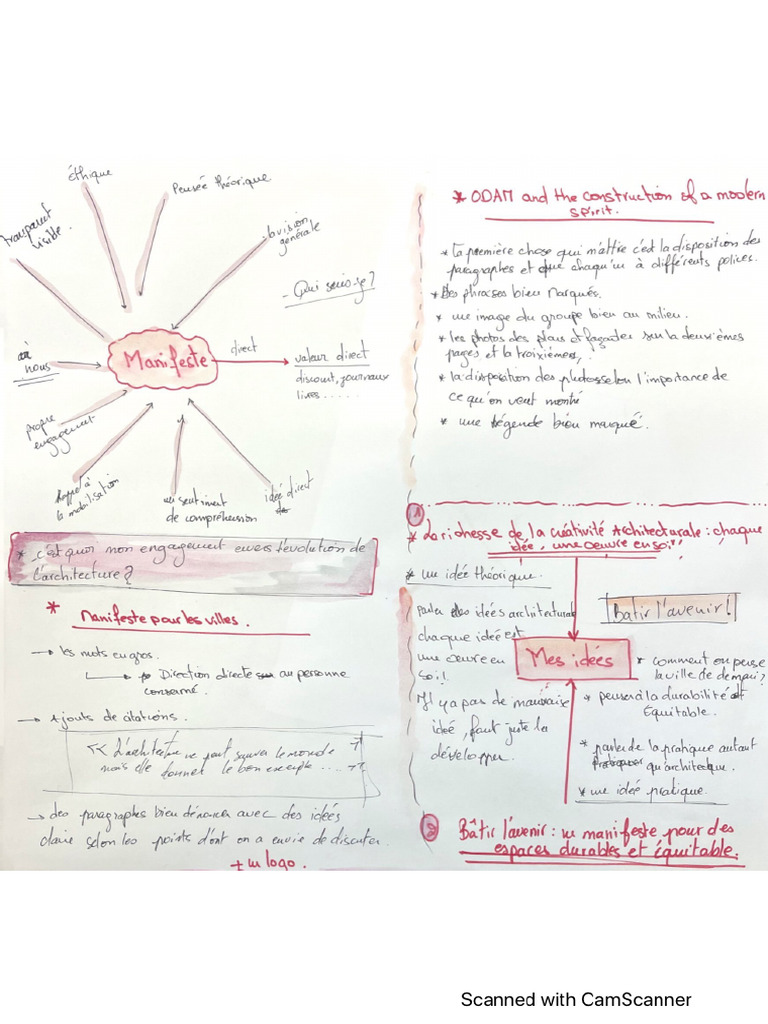 éthique
Pensée théorique
transparent
visible.
la vision
générale
- Qui suis-je?
à
nous
Manifeste
direct
valeur direct
discount, journaux
livres.....
propre
engagement
appel à
la mobilisation
un sentiment
de compréhension
idée direct
* c'est quoi mon engagement envers l'évolution de
l'architecture?
* Manifeste pour les villes.
→ les mots en gros.
Direction directe au personne
concerné.
→ Ajouts de citations.
<< L'architecture ne peut sauver le monde
mais elle donner le bon exemple.... >>
→ des paragraphes bien dénoncer avec des idées
claire selon les points d'ont on a envie de discuter.
+ un logo.
* ODAM and the construction of a modern
spirit.
* La première chose qui m'attire c'est la disposition des
paragraphes et que chaqu'un à différents polices.
* Des phrases bien marqués.
* une image du groupe bien au milieu.
* les photos des plans et façades sur la deuxièmes
pages et la troixièmes,
* la disposition des photos selon l'importance de
ce qu'on veut montré
* une légende bien marqué.
1
* La richesse de la créativité Architecturale: chaque
idée, une œuvre en soi!
* une idée théorique.
parler des idées architectural
chaque idée est
une œuvre en
soi!
Il y a pas de mauvaise
idée, faut juste la
développer.
Bâtir l'avenir!
Mes idées
* comment on pense
la ville de demain?
* penser à la durabilité et
Équitable.
* parler de la pratique autant
qu'architecture.
* une idée pratique.
2 Bâtir l'avenir: un manifeste pour des
espaces durables et équitable.
Scanned with CamScanner